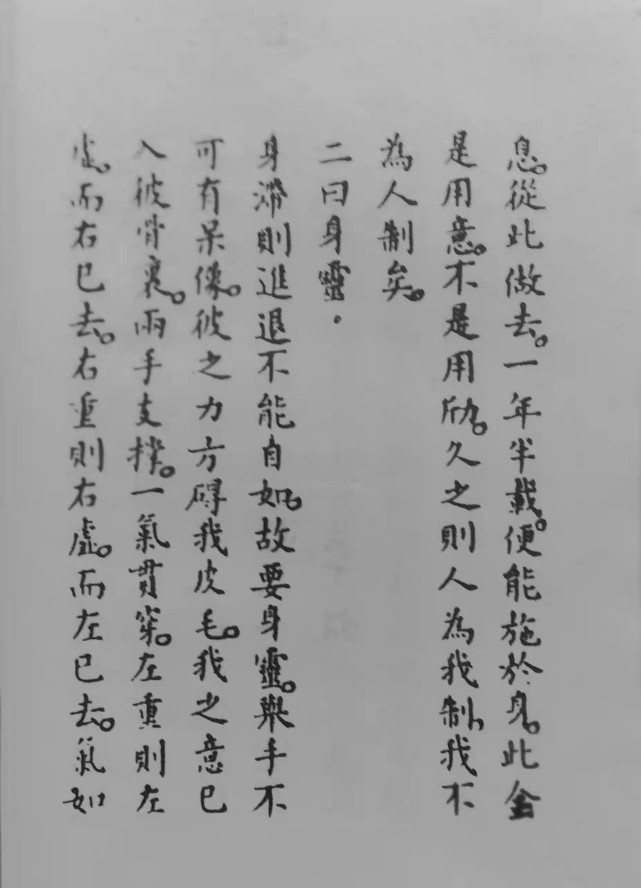 息。從此做去。一年半載。便能施於身。此全
是用意。不是用劤。久之則人為我制。我不
為人制矣。
二曰身靈．
身滯則進退不能自如。故要身靈。舉手不
可有呆像。彼之力方碍我皮毛。我之意已
入彼骨裏。兩手支撑。一氣貫穿。左重則左
虛。而右已去。右重則右虛。而左已去。氣如